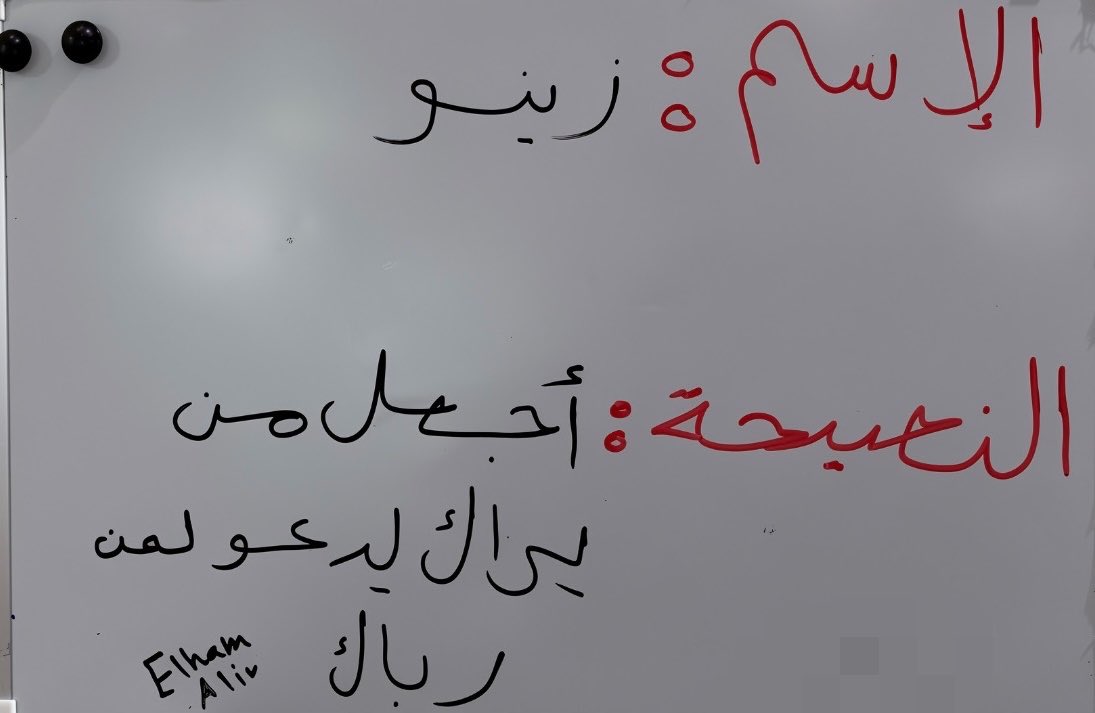 الإسم: زينو
النصيحة: أجعل من
يراك يدعو لمن
رباك
Elham
Aliv